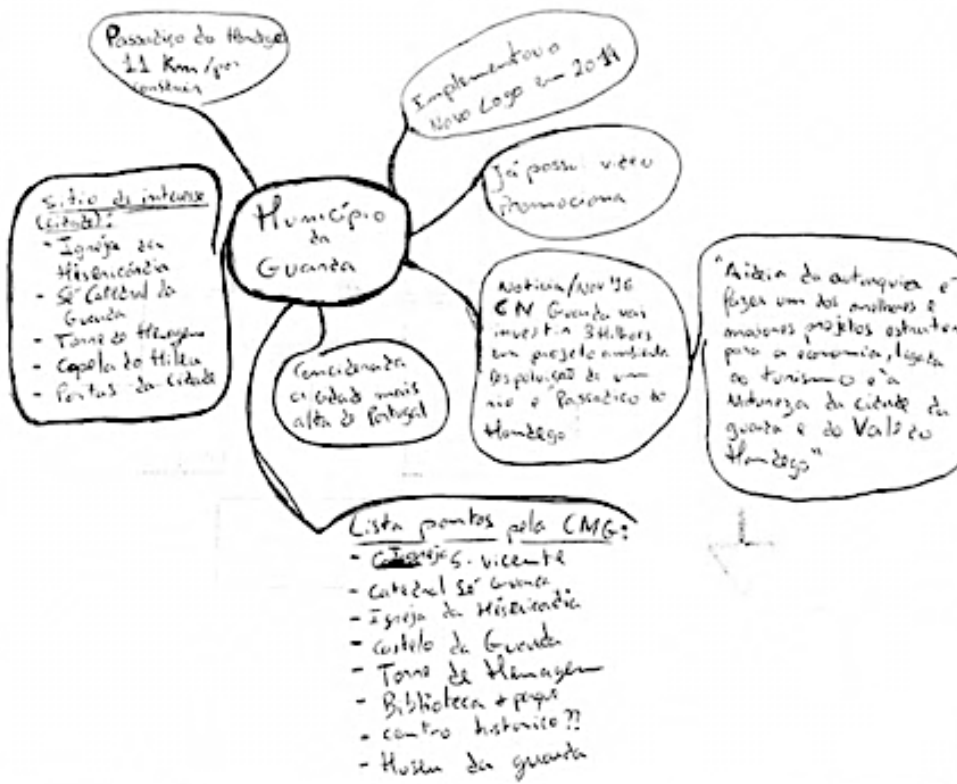 Passadiço do Mondego
11 Km/por
construir
Implementou o
Novo Logo em
Já possui video
Promociona
Município
da
Guarda
Sitio de interesse
(cidade):
- Igreja da
Misericórdia
- Sé Catedral da
Guarda
- Torre de Menagem
- Capela do Mileu
- Portas da cidade
considerada
a cidade mais
alta de Portugal
Noticia/Nov'16
CN Guarda vai
investir 3 Milhões
em projeto ambiente
Despoluição de um
rio e Passadiço do
Mondego
"A ideia da autarquia é
fazer um dos melhores e
maiores projetos
para a economia, ligada
ao turismo e à
Natureza da cidade da
guarda e do Vale do
Mondego"
Lista pontos pela CMG:
- Igreja S. vicente
- Catedral Sé Guarda
- Igreja da Misericordia
- Castelo da Guarda
- Torre de Menagem
- Biblioteca +
- centro historico??
- Museu da guarda